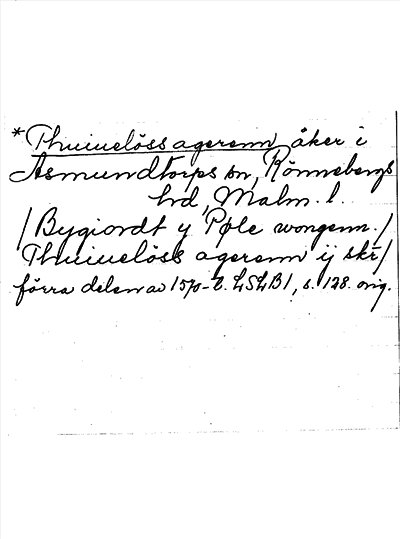 *Thuiuelöss agerenn åker i
Asmundtorps sn, Rönnebergs
hd, Malm. l.
/Bygiordt y Pøle wongenn./
Thuiuelöss agerenn ij skr/
förra delen av 1570-t. LSLB1, s. 128. orig.